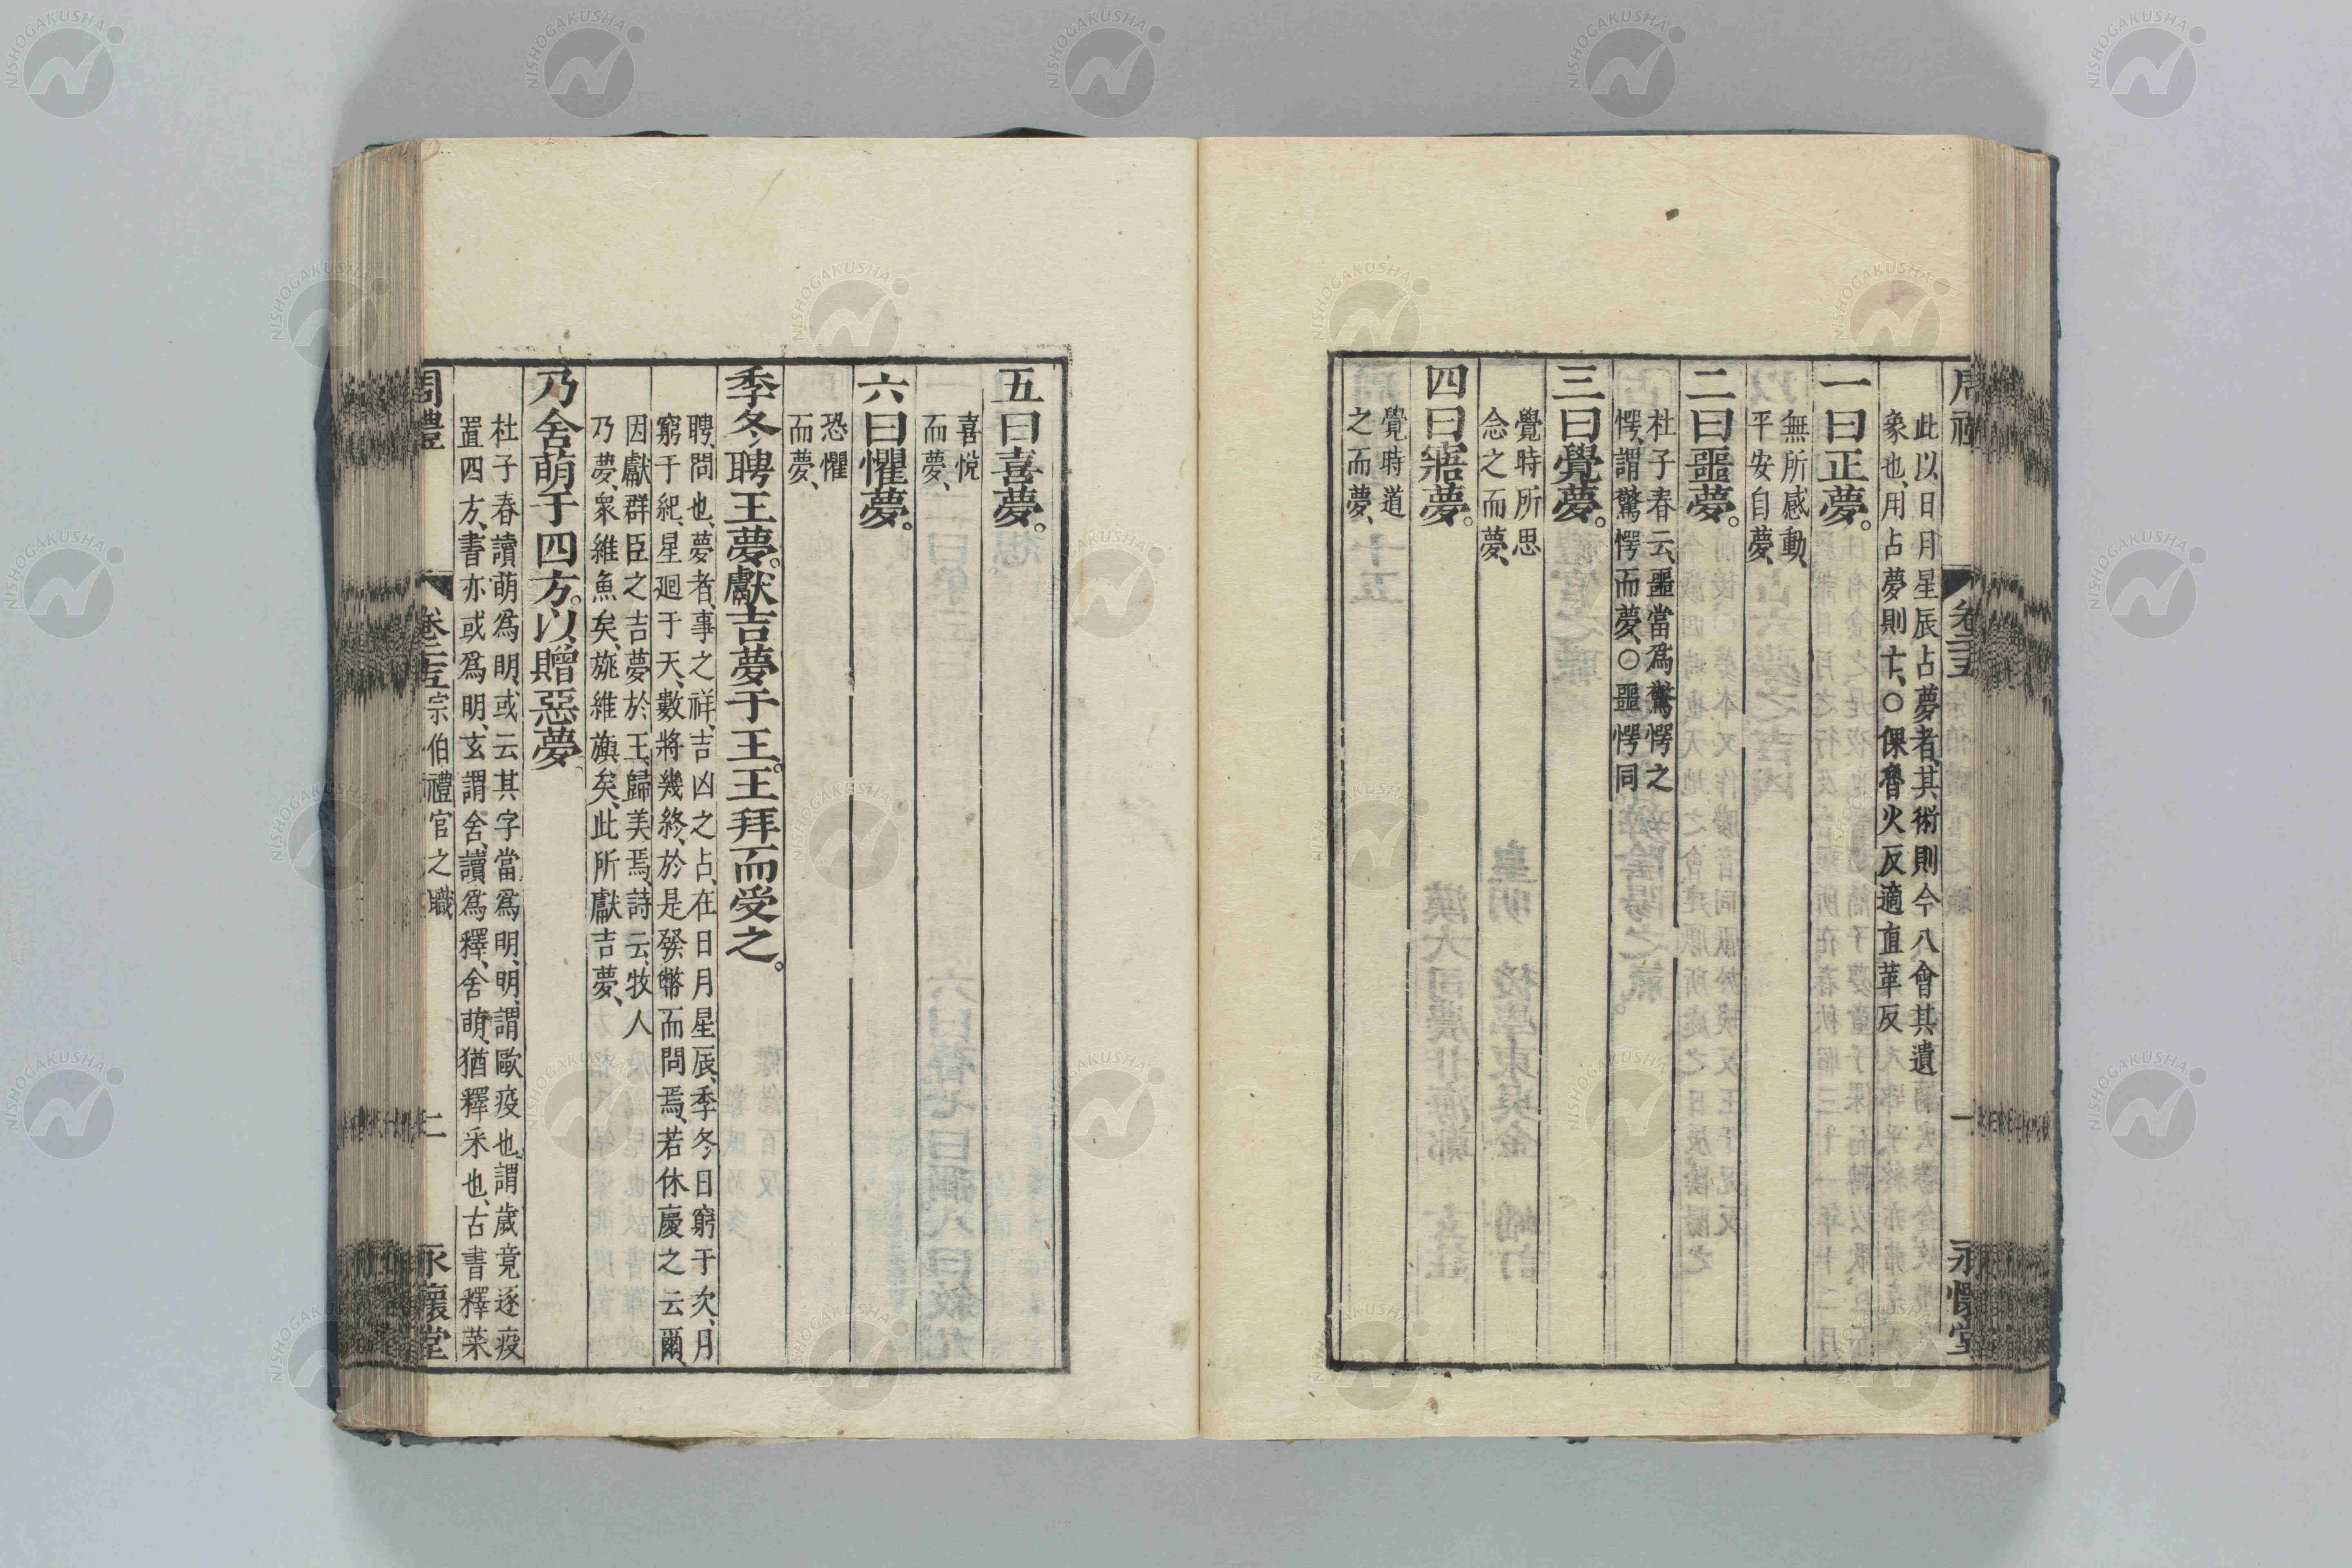 此以日月星辰占夢者、其術則今八會其遺
象也、用占夢則亡、○倮魯火反適直革反
一曰正夢。
無所感動、
平安自夢、
二曰噩夢。
杜子春云、噩當爲驚愕之
愕、謂驚愕而夢、○噩愕同
三曰覺夢。
覺時所思
念之而夢、
四曰寤夢。
覺時道
之而夢、
五曰喜夢。
喜悅
而夢、
六曰懼夢。
恐懼
而夢、
季冬、聘王夢。獻吉夢于王。王拜而受之。
聘、問也、夢者、事之祥、吉凶之占、在日月星辰、季冬、日窮于次、月
窮于紀、星廻于天、數將幾終、於是發幣而問焉、若休慶之云爾、
因獻群臣之吉夢於王、歸美焉、詩云、牧人
乃夢、衆維魚矣、旐維旟矣、此所獻吉夢、
乃舍萌于四方。以贈惡夢。
杜子春讀萌爲明、或云其字當爲明、明、謂歐疫也、謂歲竟逐疫
置四方、書亦或爲明、玄謂舍、讀爲釋、舍萌、猶釋采也、古書釋菜
周禮 卷二十五 宗伯禮官之職 二 永懷堂